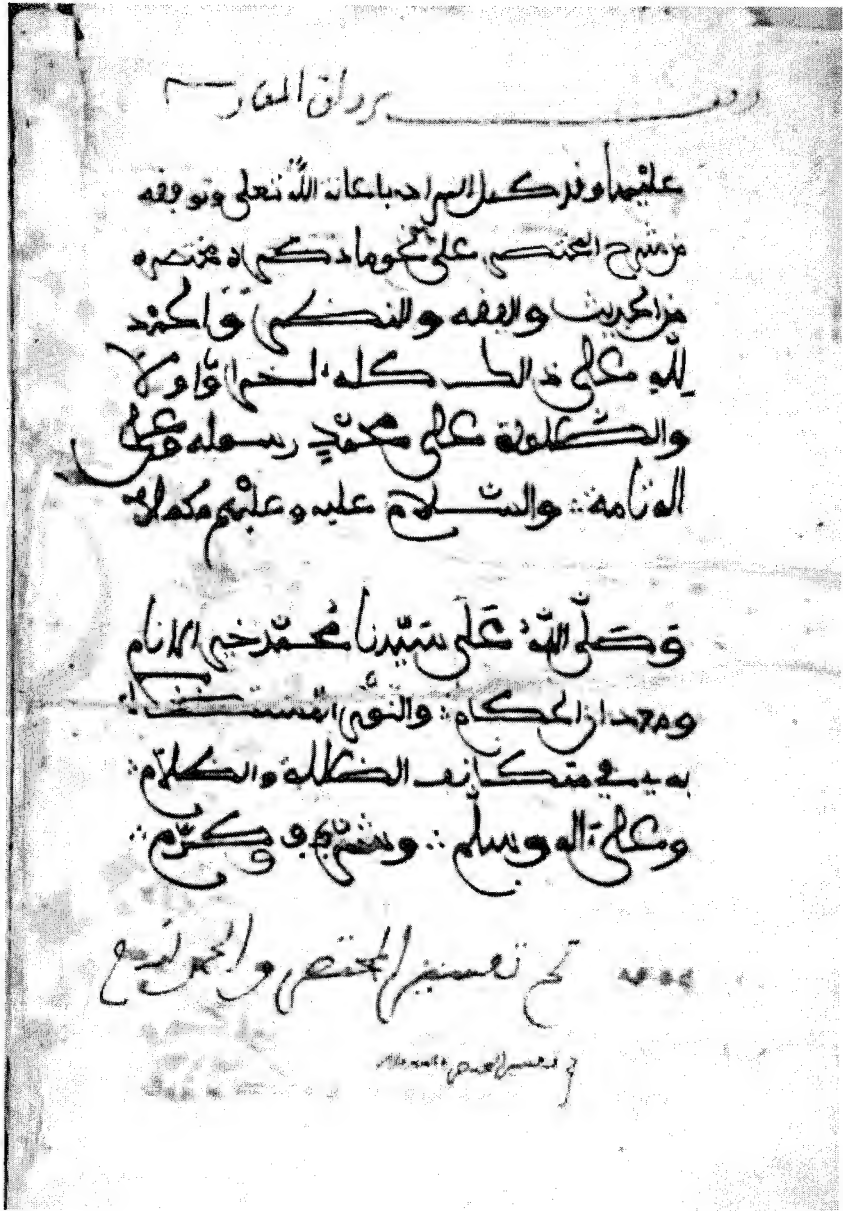 وقف برواق المغاربة
عليهما وقد كمل المراد باعانة الله تعلى وتوفيقه
من شرح المختصر على نحو ما ذكره مختصره
من الحديث والفقه والنظر والحمد
لله على ذالك كله ءاخرا وأولا
والصلوة على محمد رسوله وعلى
اله تامة والسلام عليه وعليهم مكملا
وصلى الله على سيدنا محمد خير الانام
والنور المستضاء
به في متكاثف الظلل والظلام
وعلى ءاله وسلم وشرف وكرم
تم تفسير المختصر والحمد لله
تم تفسير المختصر